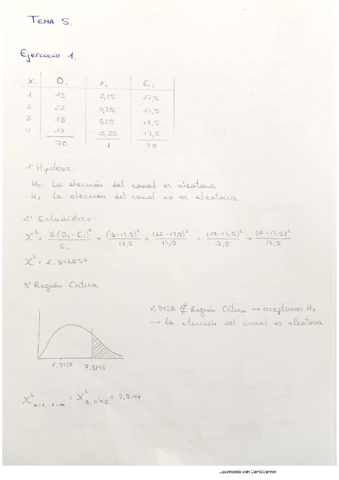 TEMA 5.
Ejercicio 1.
X Oi Pi Ei
1 13 0,25 17,5
2 22 0,25 17,5
3 18 0,25 17,5
4 17 0,25 17,5
70 1 70
1º Hipótesis:
H0: La elección del canal es aleatoria
H1: La elección del canal no es aleatoria
2º Estadístico:
X² = Σ(Oi-Ei)² / Ei = (13-17,5)² / 17,5 + (22-17,5)² / 17,5 + (18-17,5)² / 17,5 + (17-17,5)² / 17,5
X² = 2,342857
3º Región Crítica
2,3428 ∉ Región Crítica → aceptamos H0
→ la elección del canal es aleatoria
2,3428 7,8147
= 7,8147
Scanned with CamScanner